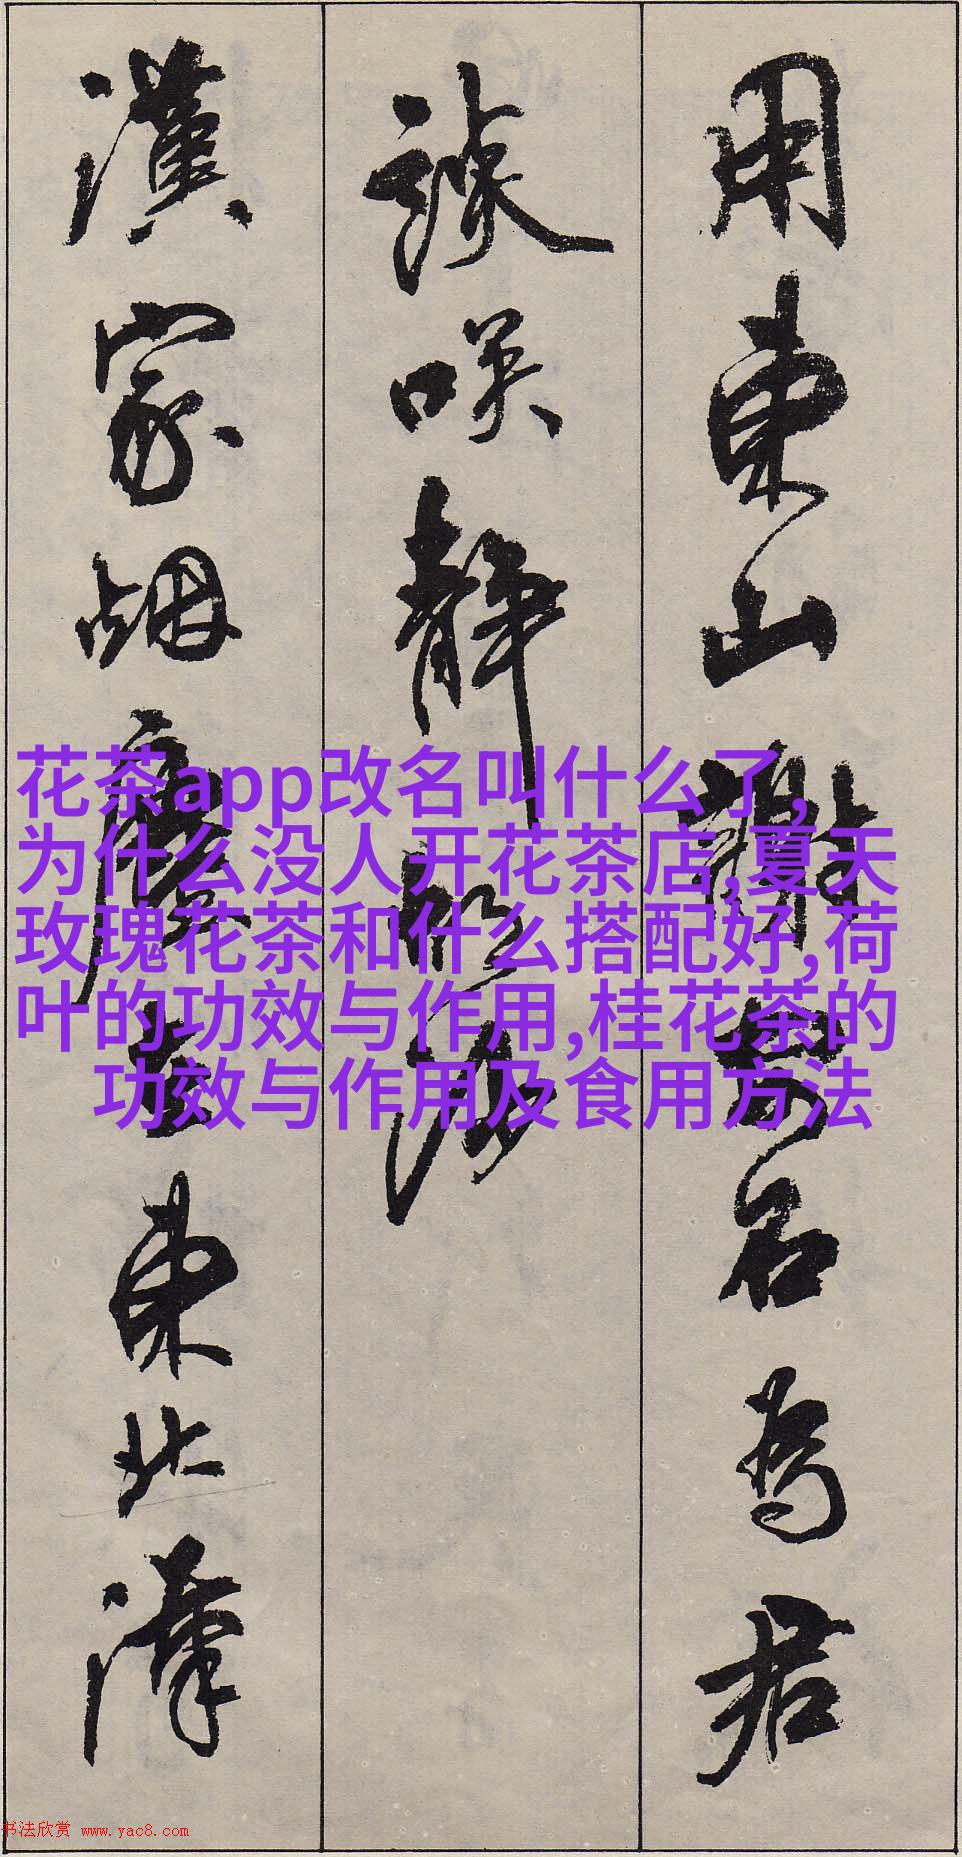 用東山謝安石為君
談咲靜胡沙
漢家烟塵在東北漢
花茶app改名叫什么了,
为什么没人开花茶店,夏天
玫瑰花茶和什么搭配好,荷
叶的功效与作用,桂花茶的
功效与作用及食用方法
书法欣赏 www.yac8.com